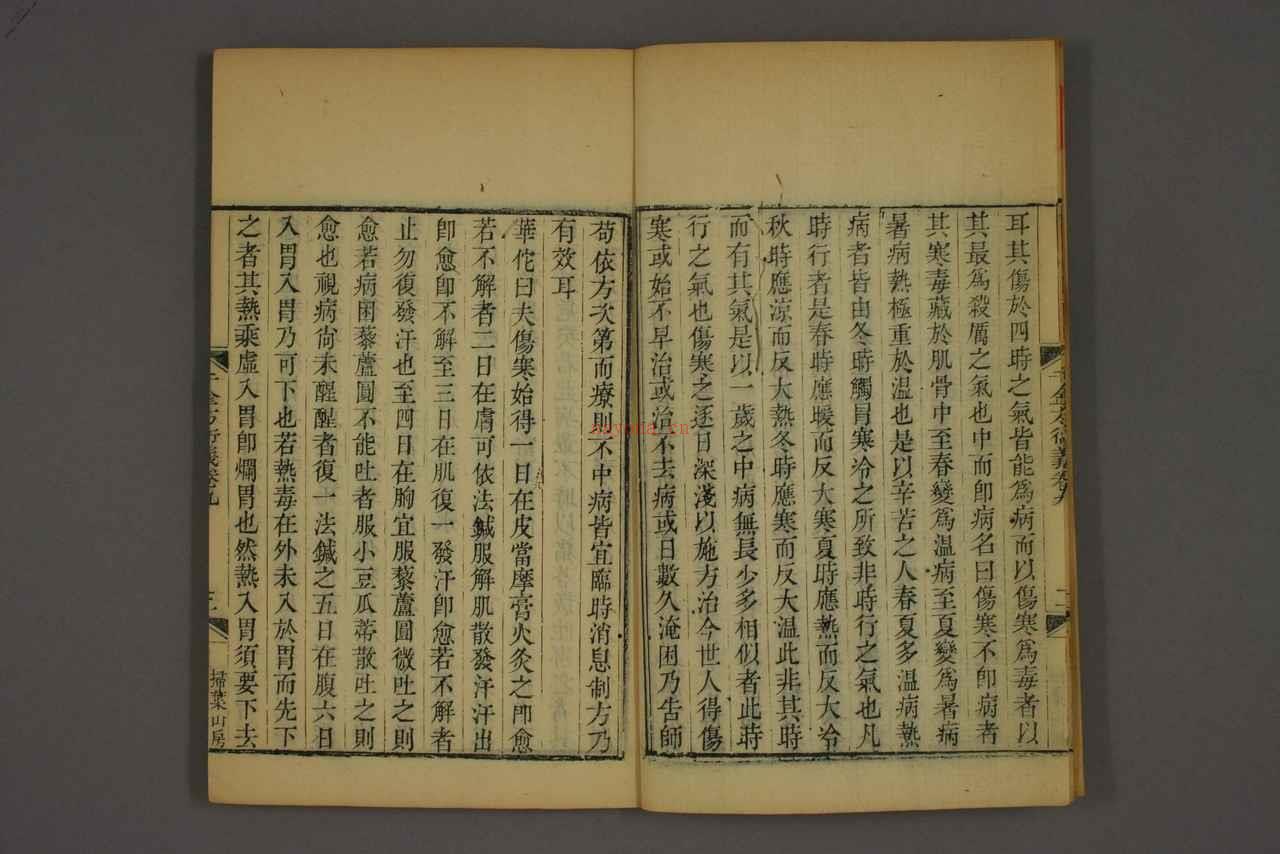 耳其傷於四時之氣皆能爲病而以傷寒爲毒者以
其最爲殺厲之氣也中而卽病名曰傷寒不卽病者
其寒毒藏於肌骨中至春變爲溫病至夏變爲暑病
暑病熱極重於溫也是以辛苦之人春夏多溫病熱
病者皆由冬時觸冒寒冷之所致非時行之氣也凡
時行者是春時應暖而反大寒夏時應熱而反大冷
秋時應涼而反大熱冬時應寒而反大溫此非其時
而有其氣是以一歲之中病無長少多相似者此時
行之氣也傷寒之逐日深淺以施方治今世人得傷
寒或始不早治或治不去病或日數久淹困乃告師
苟依方次第而療則不中病皆宜臨時消息制方乃
有效耳
華佗曰夫傷寒始得一日在皮當摩膏火灸之卽愈
若不解者二日在膚可依法鍼服解肌散發汗汗出
卽愈卽不解至三日在肌復一發汗卽愈若不解者
止勿復發汗也至四日在胸宜服藜蘆圓微吐之則
愈若病困藜蘆圓不能吐者服小豆瓜蒂散吐之則
愈也視病尙未醒醒者復一法鍼之五日在腹六日
入胃入胃乃可下也若熱毒在外未入於胃而先下
之者其熱乘虛入胃卽爛胃也然熱入胃須要下去
千金方衍義卷九
二
千金方衍義卷九
掃葉山房